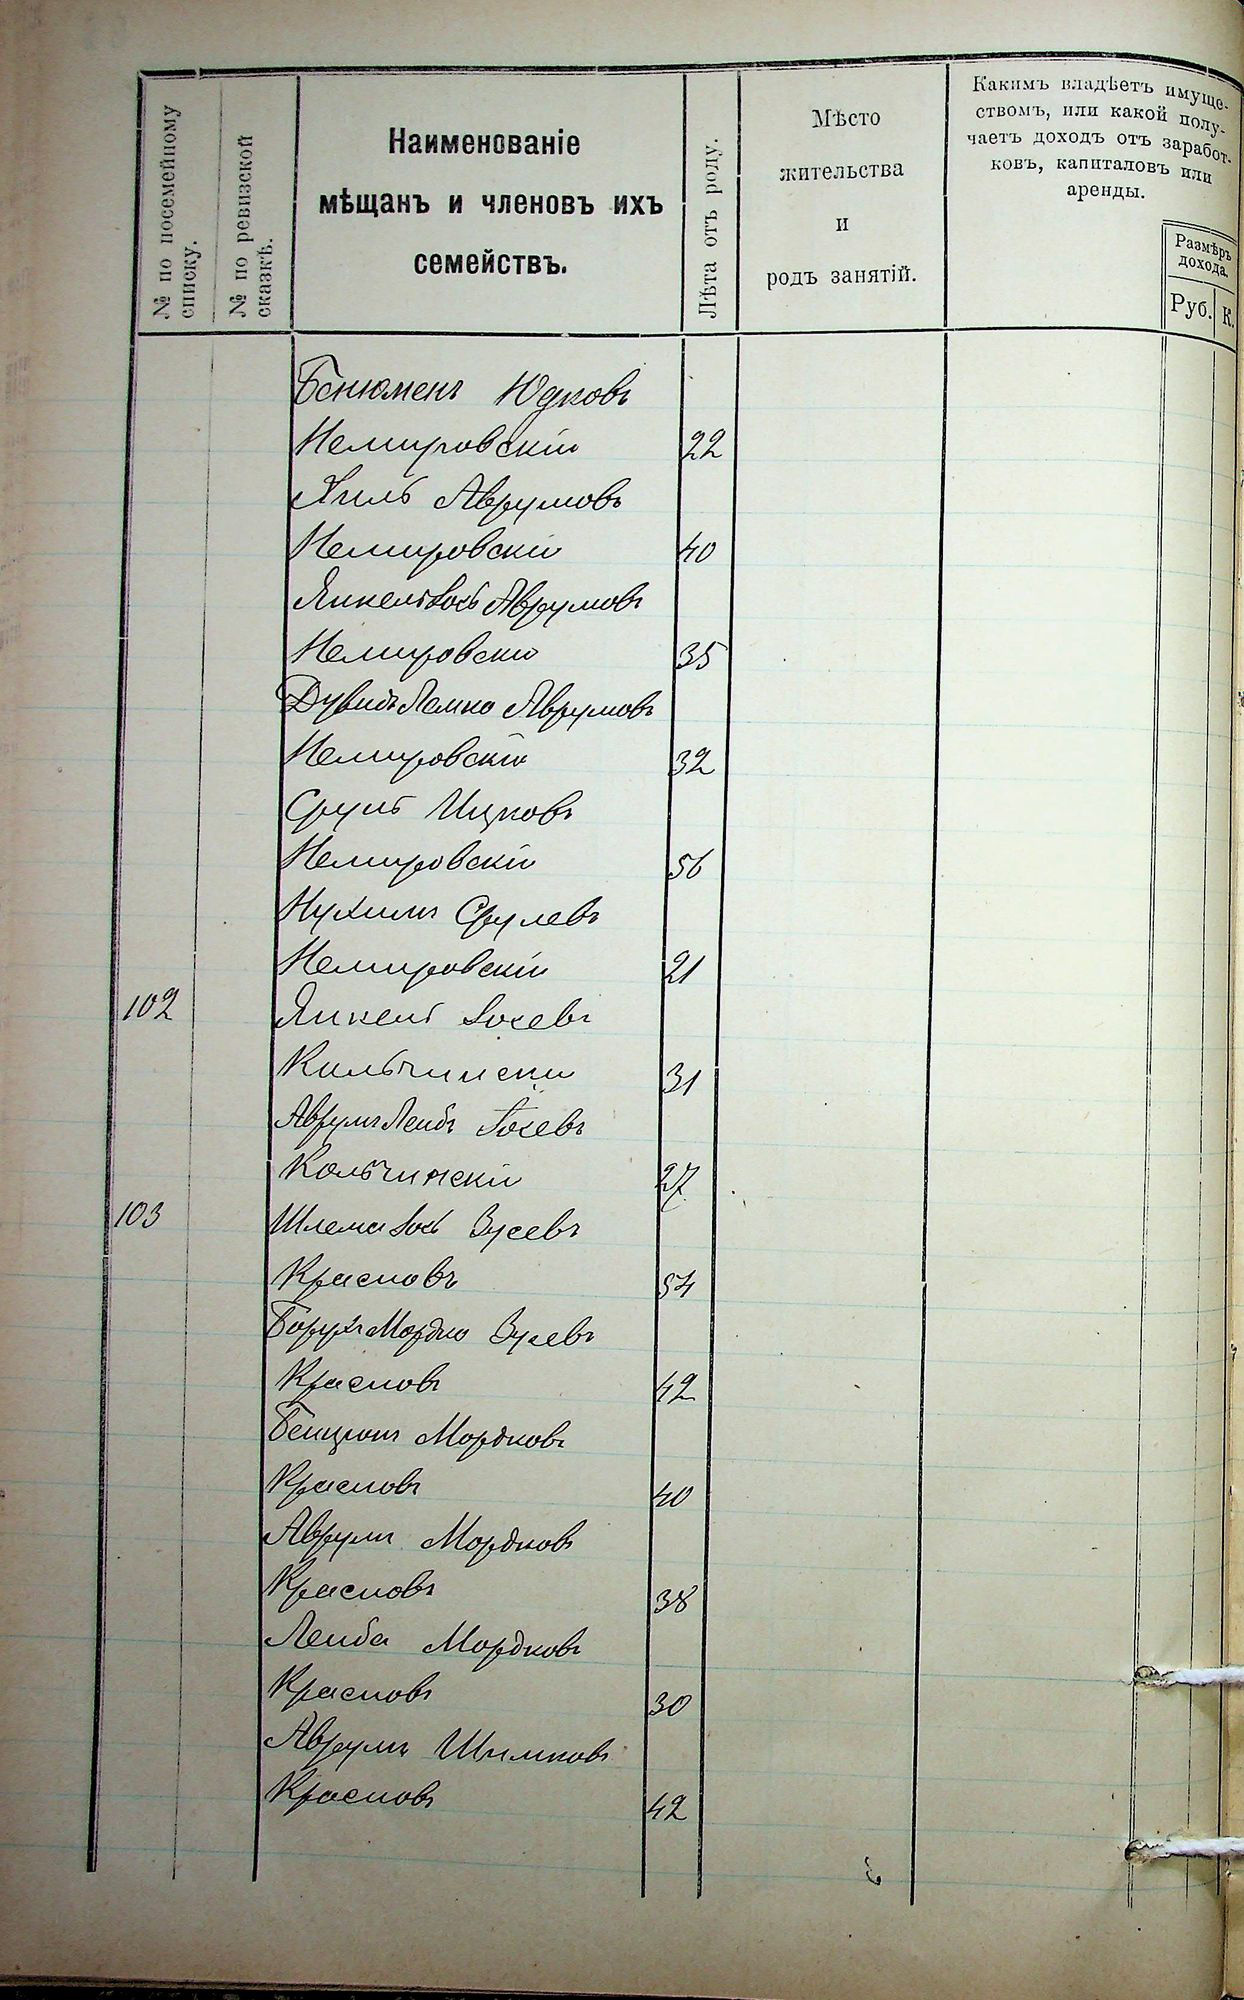 № по посемейному
списку.
№ по ревизской
сказкѣ.
Наименованіе
мѣщанъ и членовъ ихъ
семействъ.
Лѣта отъ роду.
Мѣсто
жительства
и
родъ занятій.
Какимъ владѣетъ имуще-
ствомъ, или какой полу-
чаетъ доходъ отъ заработ-
ковъ, капиталовъ или
аренды.
Размѣръ
дохода.
Руб. К.
Бенюменъ Юдковъ
Немировскій 22
Хиль Аврумовъ
Немировскій 40
Янкель Іось Аврумовъ
Немировскій 35
Дувидъ Лемко Аврумовъ
Немировскій 32
Сруль Ицковъ
Немировскій 56
Нухимъ Срулевъ
Немировскій 21
102 Янкель Іосевъ
Кильчински 31
Аврумъ Лейбъ Іосевъ
Кольчинскій 27
103 Шлема Іось Зусевъ
Красновъ 54
Борухъ Мордко Зусевъ
Красновъ 42
Бенционъ Мордковъ
Красновъ 40
Аврумъ Мордковъ
Красновъ 38
Лейба Мордковъ
Красновъ 30
Аврумъ Шимковъ
Красновъ 42